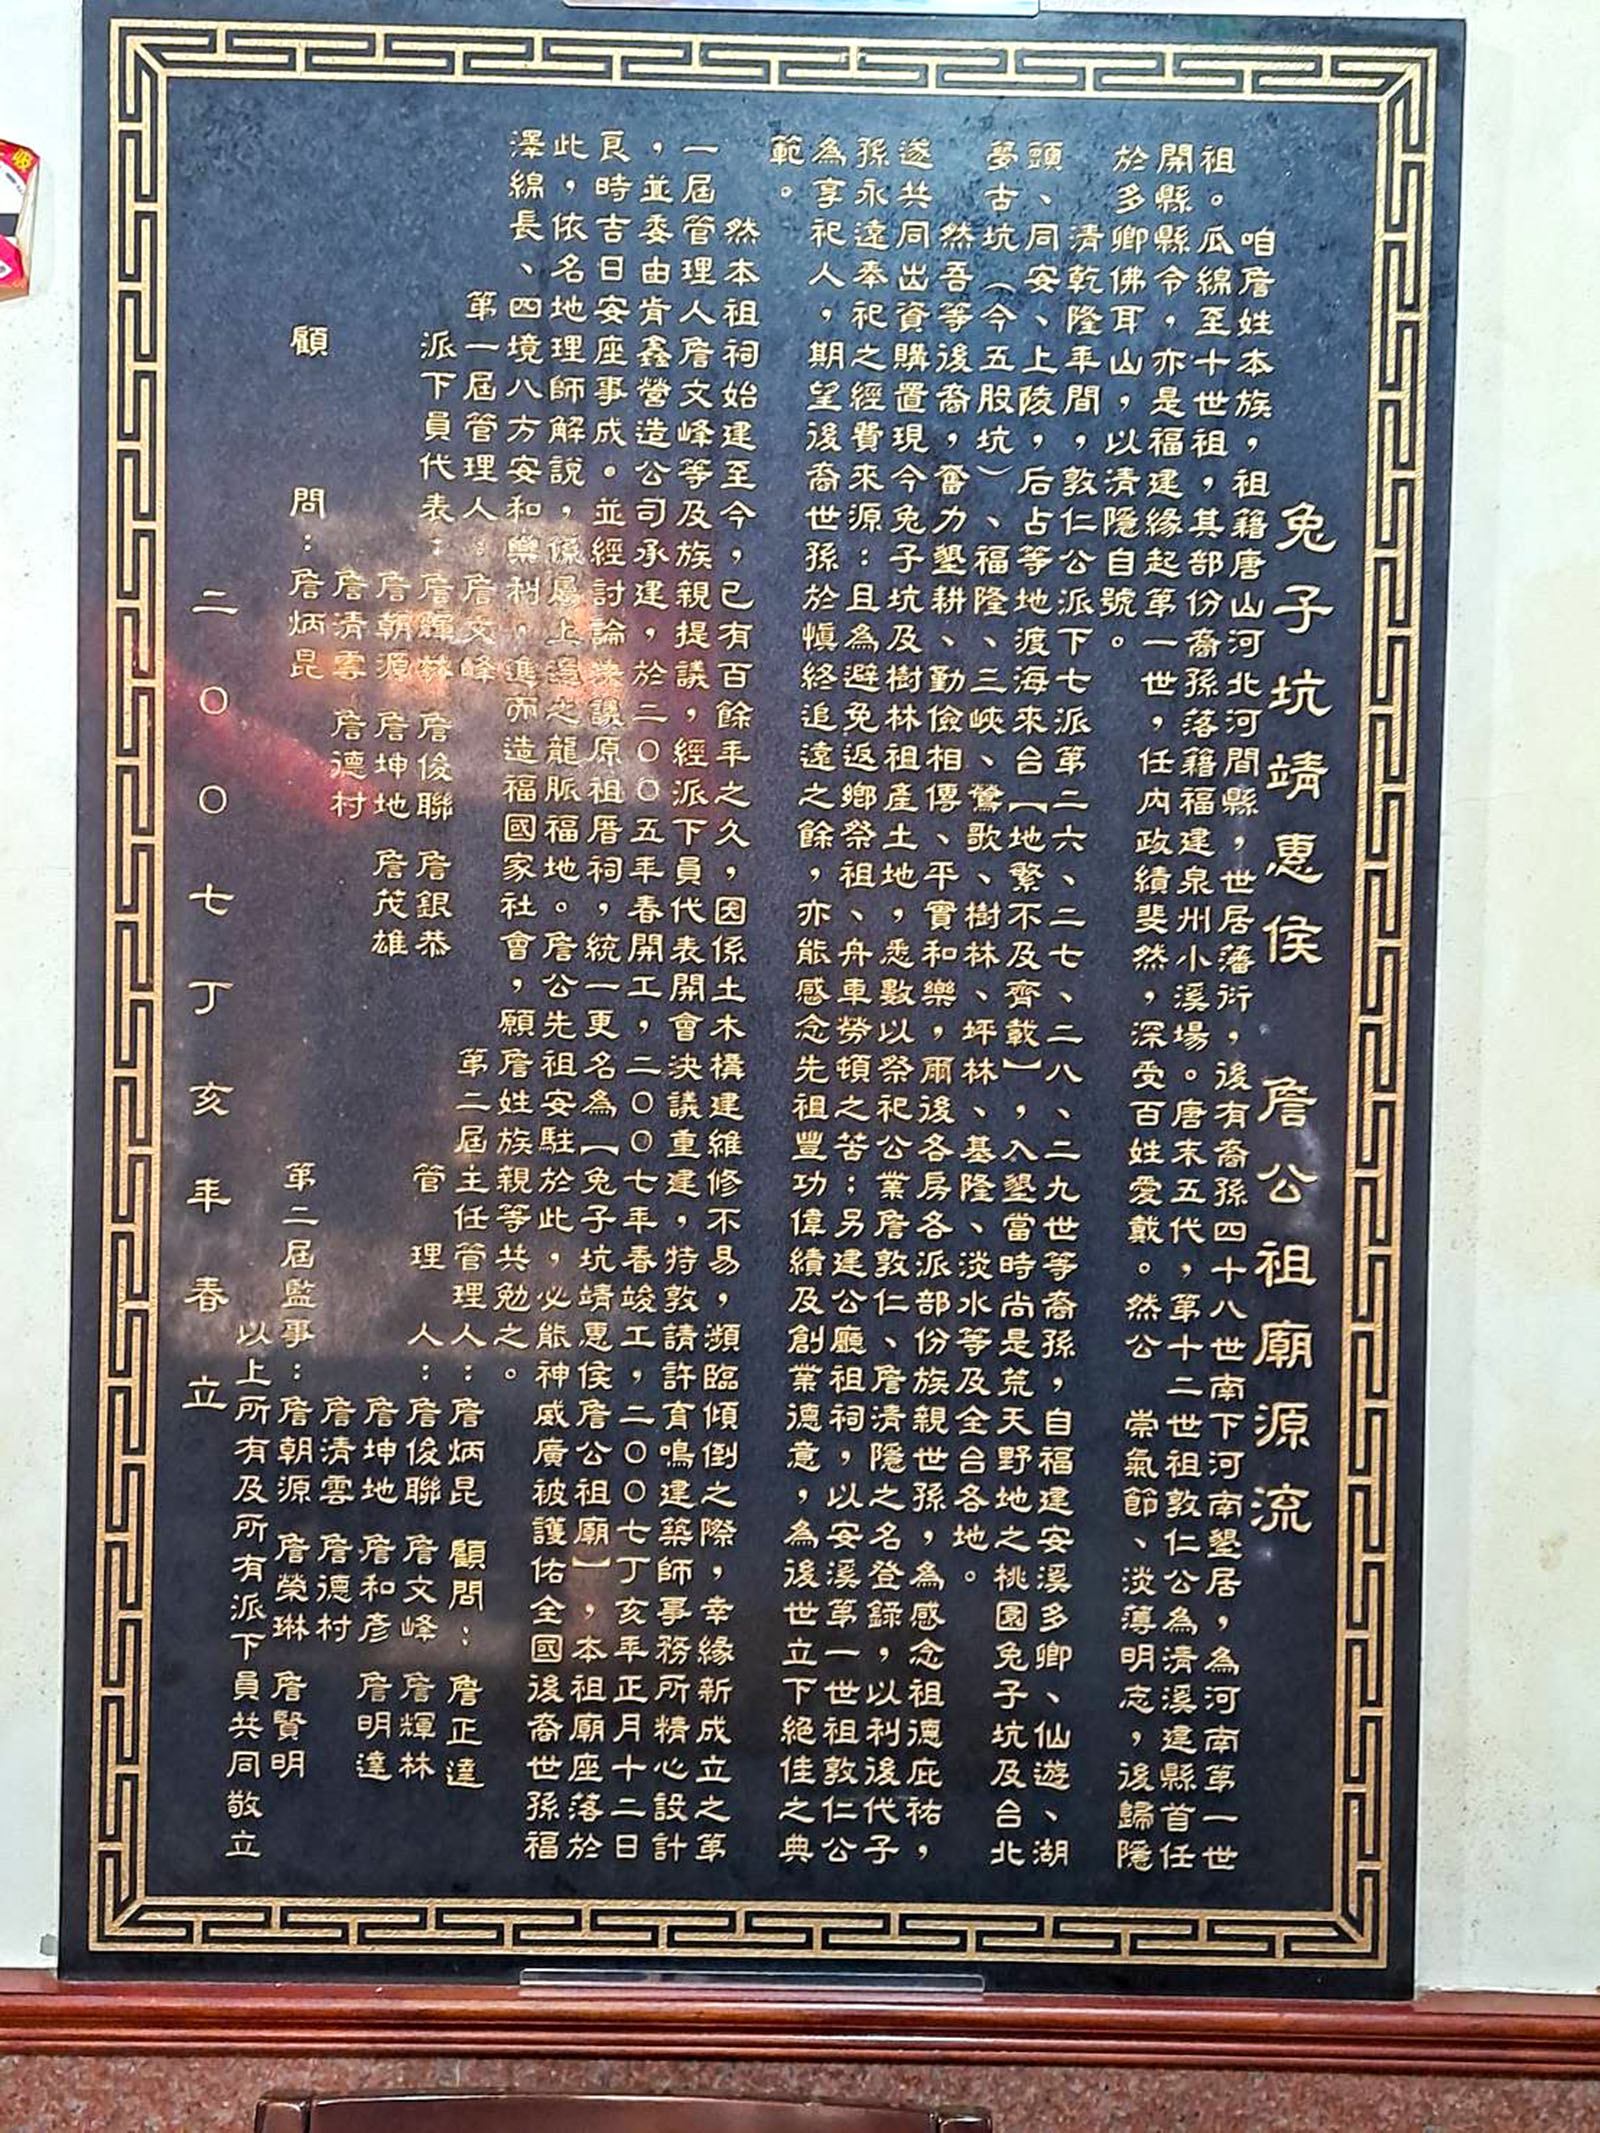 兔子坑靖惠侯　詹公祖廟源流
咱詹姓本族，祖籍唐山河北河間縣，世居藩衍，後有裔孫四十八世南下河南墾居，為河南第一世
祖。瓜綿至十世祖，其部份裔孫落籍福建泉州小溪場。唐末五代，第十二世祖敦仁公為清溪建縣首任
開縣縣令，亦是福建緣起第一世，任內政績斐然，深受百姓愛戴。然公　崇氣節、淡薄明志，後歸隱
於多卿佛耳山，以清隱自號。
清乾隆年間，敦仁公派下七派第二六、二七、二八、二九世等裔孫，自福建安溪多卿、仙遊、湖
頭、同安、上陵，后占等地渡海來台【地繁不及齊載】，入墾當時尚是荒天野地之桃園兔子坑及台北
夢古坑（今五股坑）、福隆、三峽、鶯歌、樹林、坪林、基隆、淡水等及全台各地。
然吾等後裔，奮力墾耕、勤儉相傳、平實和樂，爾後各房各派部份族親世孫，為感念祖德庇祐，
遂共同出資購置現今兔子坑及樹林祖產土地，悉數以祭祀公業詹敦仁、詹清隱之名登錄，以利後代子
孫永遠奉祀之經費來源：且為避免返鄉祭祖、舟車勞頓之苦；另建公廳祖祠，以安溪第一世祖敦仁公
為享祀人，期望後裔世孫於慎終追遠之餘，亦能感念先祖豐功偉績及創業德意，為後世立下絕佳之典
範。
然本祖祠始建至今，已有百餘年之久，因係土木構建維修不易，瀕臨傾倒之際，幸緣新成立之第
一屆管理人詹文峰等及族親提議，經派下員代表開會決議重建，特敦請許育鳴建築師事務所精心設計
，並委由肯鑫營造公司承建，於二００五年春開工，二００七年春竣工，二００七丁亥年正月十二日
良時吉日安座事成。並經討論決議原祖厝祠，統一更名為【兔子坑靖惠侯詹公祖廟】，本祖廟座落於
此，依名地理師解說，係屬上選之龍脈福地。詹公先祖安駐於此，必能神威廣被護佑全國後裔世孫福
澤綿長、四境八方安和樂利，進而造福國家社會，願詹姓族親等共勉之。
第一屆管理人：詹文峰　第二屆主任管理人：詹炳昆　顧問：詹正達
派下員代表：詹輝林　詹俊聯　詹銀恭　管理人：詹俊聯　詹文峰　詹輝林
詹朝源　詹坤地　詹茂雄　詹坤地　詹和彥　詹明達
詹清雲　詹德村　詹清雲　詹德村
顧　問：詹炳昆　第二屆監事：詹朝源　詹榮琳　詹賢明
以上所有及所有派下員共同敬立
二００七丁亥年春立